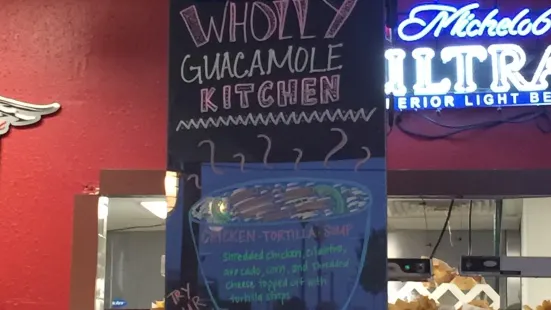 WHOLLY
GUACAMOLE
KITCHEN
CHICKEN-TORTILLA-SOUP
Shredded chicken, cilantro,
avocado, corn, and shredded
cheese topped off with
tortilla strips
TRY
UR
Michelob
ULTRA
ERIOR LIGHT BE